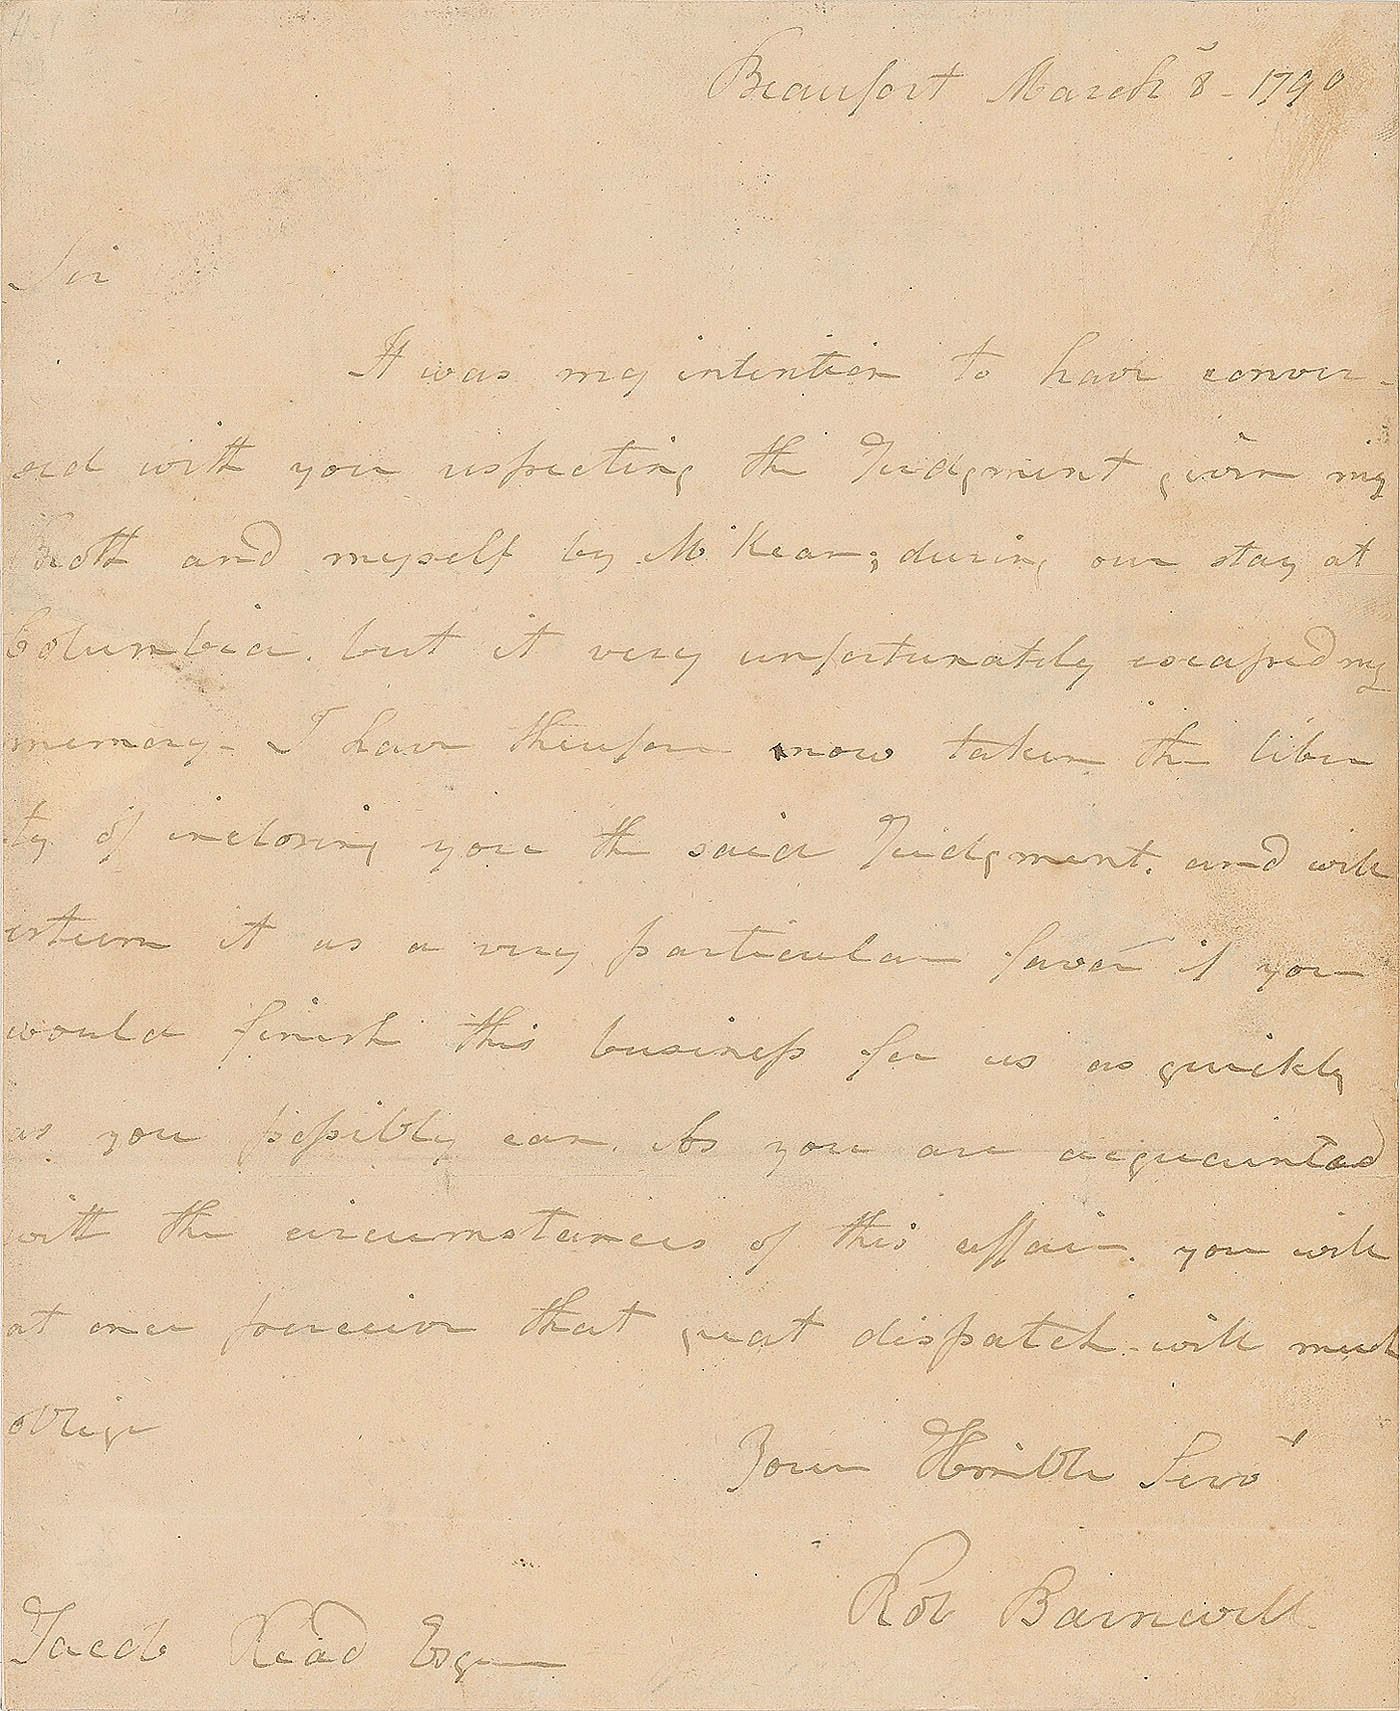 Beaufort March 8 - 1790
Sir
It was my intention to have conver-
sed with you respecting the Judgment given my
Broth and myself by McKean; during our stay at
Columbia. but it very unfortunately escaped my
memory - I have therefore now taken the liber
ty of inclosing you the said Judgment. and will
esteem it as a very particular favor if you
would finish this business for us as quickly
as you possibly can. As you are acquainted
with the circumstances of this affair. you will
at once perceive that great dispatch - will much
oblige
Your Humble Servt
Rob Barnwell
Jacob Read Esqr